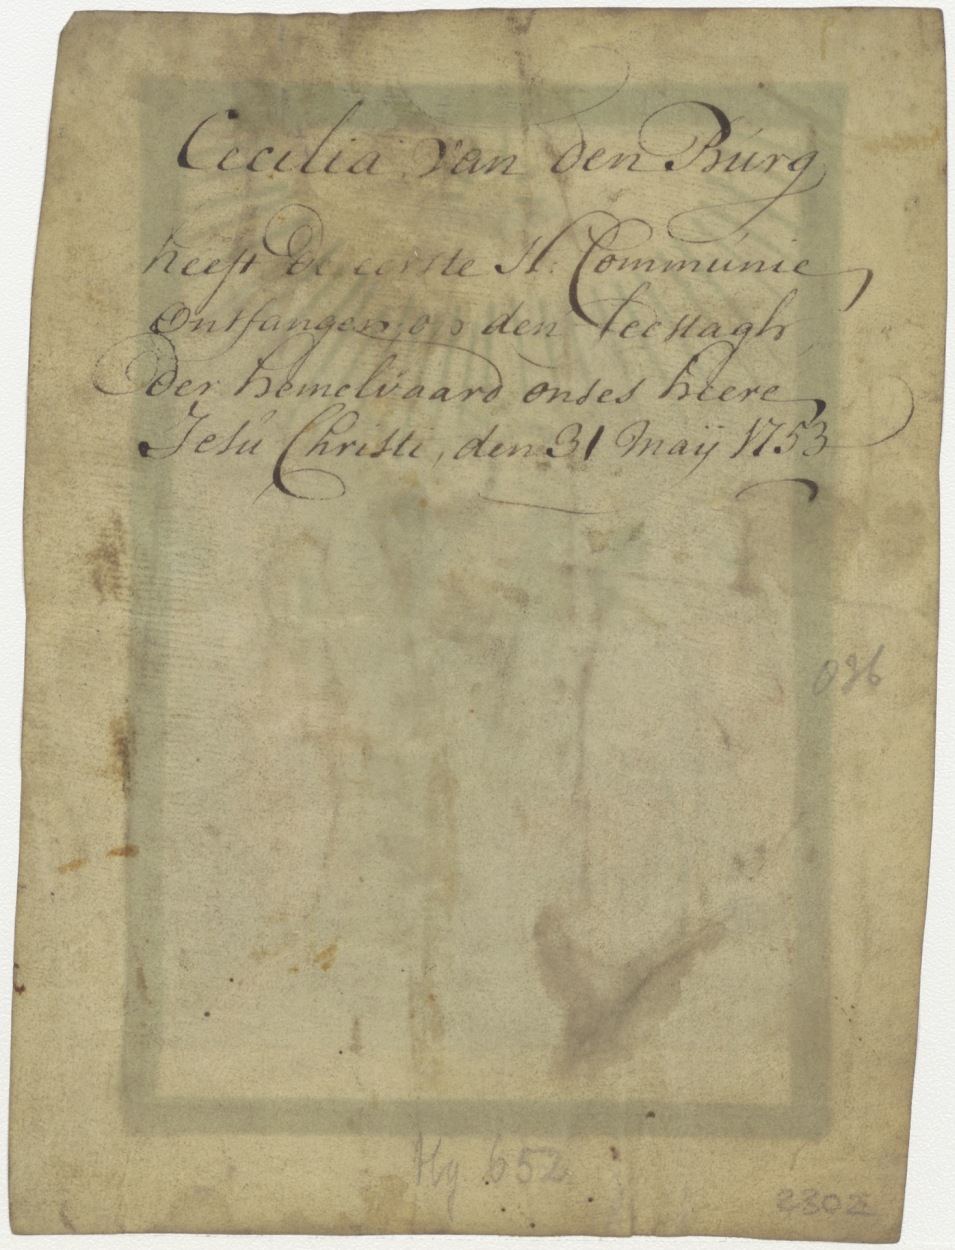 Cecilia van den Búrg
heeft de eerste H: Commúnie
Ontfangen op den feestagh
der hemelvaard onses heere
Jesú Christi, den 31 Maÿ 1753
Hg 652
2302